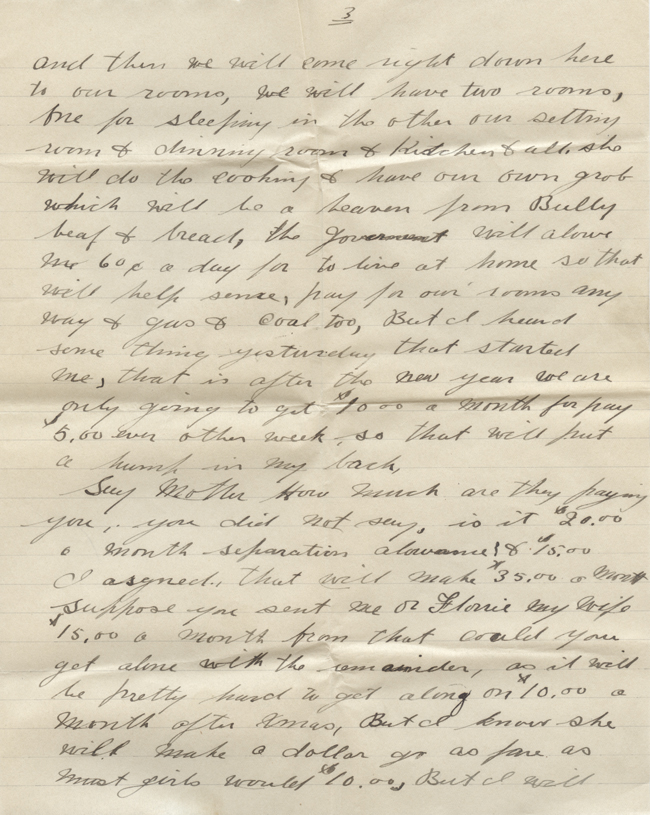 3
and then we will come right down here
to our rooms, we will have two rooms,
one for sleeping in the other our setting
room & dinning room & Kitchen & all. she
will do the cooking & have our own grob
which will be a heaven from Bully
beaf & bread, the goverment will alowe
me 60¢ a day for to live at home so that
will help sense, pay for our rooms any
way & gas & coal too, But I heard
some thing yesturday that started
me, that is after the new year we are
only going to get $10.00 a month for pay
$5.00 ever other week so that will put
a hump in my back,
Say Mother How much are they paying
you, you did not say, is it $20.00
a month separation alowance! & $15.00
I asgned, that will make $35.00 a month
suppose you sent me or Florrie my Wife
$15.00 a month from that could you
get alone with the remainder, as it will
be pretty hard to get along on $10.00 a
month after Xmas, But I know she
will make a dollar go as fare as
most girls would $10.00, But I will